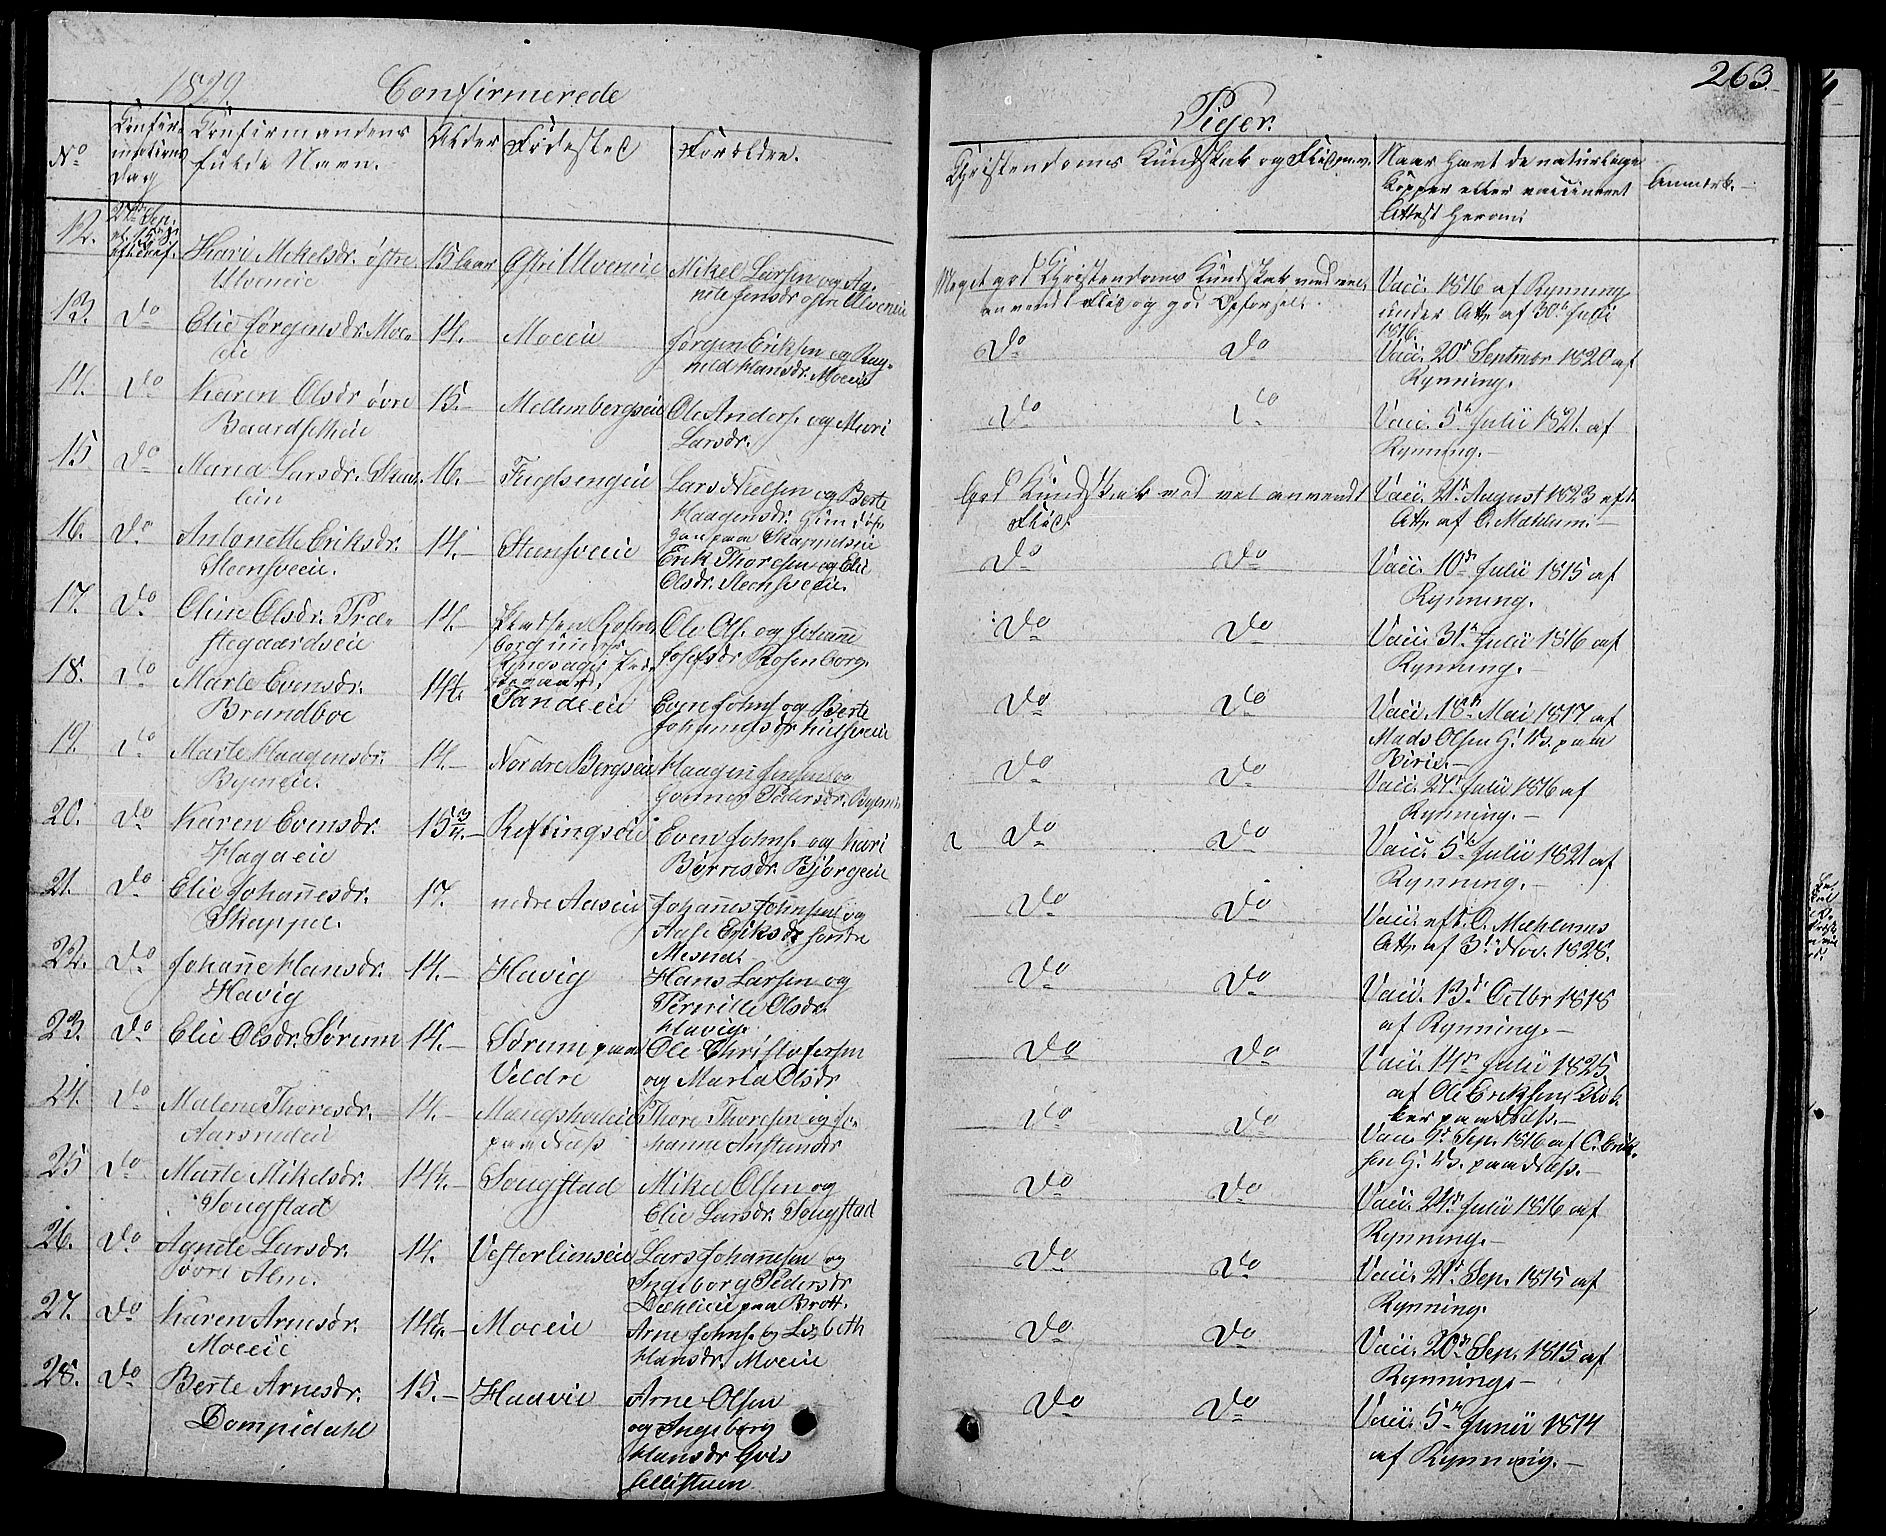 1829.
Confirmerede
Piger.
263
No
Confir-
mations
Dag
Confirmandens
fulde Navn.
Alder
Fødested
Forældre.
Christendoms Kundskab og Flid m.v.
Naar havt de naturlige
Kopper eller vaccineret
Attest herom.
Anmærk.
12. 27de Sep.
Kari Mikelsdr. østre
Ulveneie
15 Aar
Østre Ulveneie
Mikel Larsen og Ag-
nete Jensdr østre Ulveneie
Meget god Christendoms Kundskab med vel
anvendt Flid og god Opførsel.
Vacc. 1816 af Rynning
under Att. af 30te Julii
1816.
13. Do
Elie Jørgensdr. Moe-
eie
14.
Moeeie
Jørgen Eriksen og Rag-
nild Hansdr. Moeeie
Do Do
Vacc. 20d Septmbr 1820 af
Rynning.
14. Do
Karen Olsdr øvre
Baardsetheie
15.-
Mellumbergseie
Ole Anders. og Mari
Larsdr.
Do Do
Vacc. 5te Julii 1821. af
Rynning.-
15 Do
Maria Larsdr. Skau-
eie
16.-
Fuglsengeie
Lars Nielsen og Berte
Haagensdr.
paa Skappelseie
God Kundskab med vel anvendt
Flid.
Vacc. 21d August 1823 eft.
Att. af O. Mæhlum.-
16. Do
Antonette Eriksdr.
Steensveeie.
14.-
Steensveeie
Erik Thoresen og Elie
Olsdr. Steensveeie.
Do Do
Vacc. 10de Julii 1815 af
Rynning.
17. Do
Oline Olsdr. Præ-
stegaardseie
14.-
Pladsen Rosen-
borg under
Ringsager Præ-
stegaard.
Ole Ols. og Johanne
Josefsdr Rosenborg.
Do Do
Vacc. 31te Julii 1816 af
Rynning.
18. Do
Marte Evensdr.
Brundboe
14½.
Tandeeie
Even Johns. og Berte
Do Do
Vacc. 18de Mai 1817 af
Mads Olsen G. Ws. paa
Birie.-
19. Do
Marte Haagensdr.
Bymeie.
14.-
Nordre Bergseie
Haagen Jensen og
Gunner Pedersdr.
Do Do
Vacc. 24d Julii 1816 af
Rynning.-
20. Do
Karen Evensdr.
Hagaeie
15¾.-
Reftingseie
Even Johns. og Kari
Børresdr. Bjørgeeie
Do Do
Vacc. 5te Julii 1821 af
Rynning.-
21. Do
Elie Johannesdr.
Skappel.
17.
nedre Aaseie
Johannes Johnsen og
Aase Eriksdr søndre
Mesna.
Do Do
Vacc. eft. O. Mæhlums
Att. af 3d Nov. 1828.
22. Do
Johanne Hansdr.
Havig
14.-
Havig
Hans Larsen og
Pernille Olsdr.
Havig.
Do Do
Vacc. 13de Octbr 1818
af Rynning.-
23. Do
Elie Olsdr. Sørum
14.-
Sørum paa
Veldre
Ole Christofersen
og Marta Olsdr
Do Do
Vacc. 14de Julii 1825
af Ole Eriksen Klok-
ker paa Næss.-
24. Do
Malene Thoresdr.
Aarsrudeie
14.-
paa Næss
Thore Thoresen og Jo-
hanne Anstundsdr
Do Do
Vacc. 9d Sep. 1816 af C. Erik-
sen G. Ws. paa Næss.-
25 Do
Marte Mikelsdr.
Tougstad
14½.-
Tougstad
Mikel Olsen og
Elie Larsdr. Tougstad
Do Do
Vacc. 24d Julii 1816 af
Rynning.-
26. Do
Agnete Larsdr.
øvre Alm.
14.
Vesterlienseie
Lars Johannesen og
Ingeborg Pedersdr
Dæhlieie paa Brott.
Do Do
Vacc. 21d Sep. 1815 af
Rynning.
27. Do
Karen Arnesdr.
Moeeie
14¼.-
Moeeie
Arne Johns. og Lisbeth
Hansdr. Moeeie
Do Do
Vacc. 20de Sep. 1815 af
Rynning.-
28. Do
Berte Arnesdr.
Dompidahl
15.-
Haavie
Arne Olsen
og Ingeborg
Hansdr
Do Do
Vacc. 5te Junii 1814
af Rynning.-